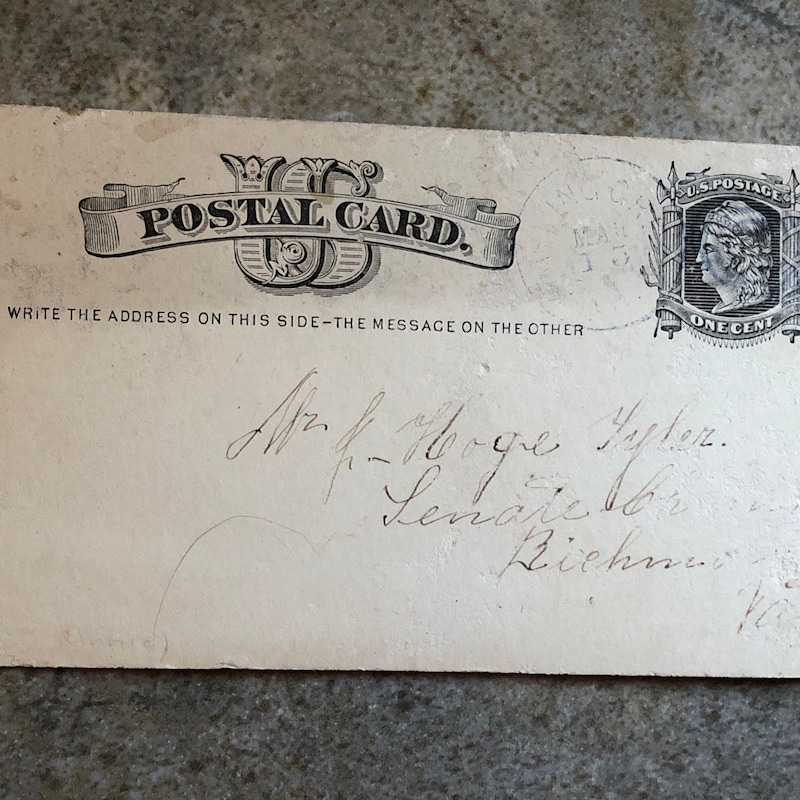 US
POSTAL CARD.
U.S. POSTAGE
ONE CENT
WRITE THE ADDRESS ON THIS SIDE–THE MESSAGE ON THE OTHER
MAR
Mr J- Hoge Tyler.
Senate
Richmo
Va